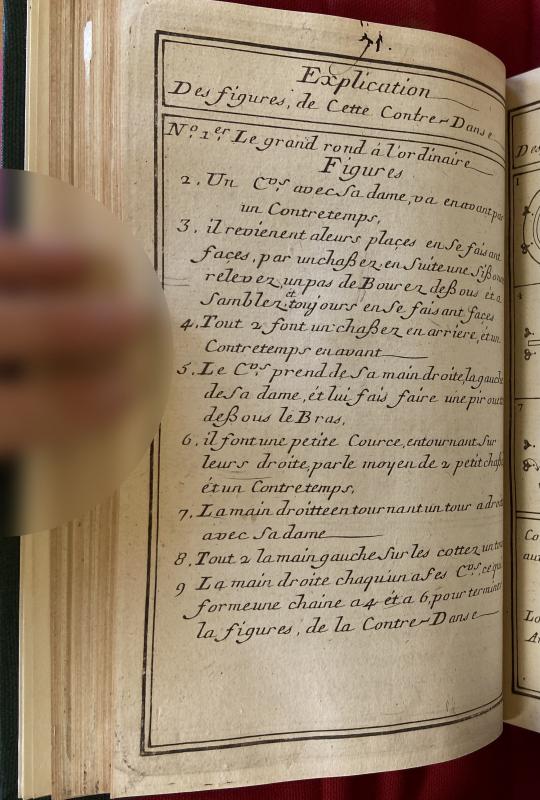 71.
Explication
Des figures, de Cette Contre-Danse
N.o 1.er Le grand rond à l'ordinaire
Figures
2. Un C.vs avec sa dame, va en avant par
un Contretemps,
3. il revienent aleurs places en se faisant
faces, par un chaßez, en suite une Sißonne
relevez, un pas de Bourez deßous et a
Samblez, et toujours en se faisant faces
4. Tout 2 font un chaßez en arriere, ét un
Contretemps en avant
5. Le C.vs prend de sa main droite, la gauche
de sa dame, ét lui fais faire une pirouit
deßous le Bras,
6. il font une petite Cource, en tournant sur
leurs droite, par le moyen de 2 petit chaß
ét un Contretemps,
7. La main droitte en tournant un tour a droit
avec sa dame
8. Tout 2 la main gauche sur les cottez un tou
9 La main droite chaqu'un a ses C.vs, ce qui
forme une chaine a 4 ét a 6, pour termine
la figures, de la Contre-Danse
Des
1
4
7
Co
au